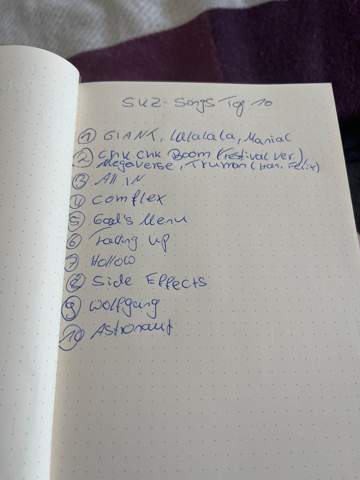 SKZ-Songs Top 10
① GIANT, Lalalala, Maniac
② Chk Chk Boom (Festival ver.)
Megaverse, Truman (Han, Felix)
③ All IN
④ Complex
⑤ God's Menu
⑥ Falling Up
⑦ Hollow
⑧ Side Effects
⑨ Wolfgang
⑩ Astronaut